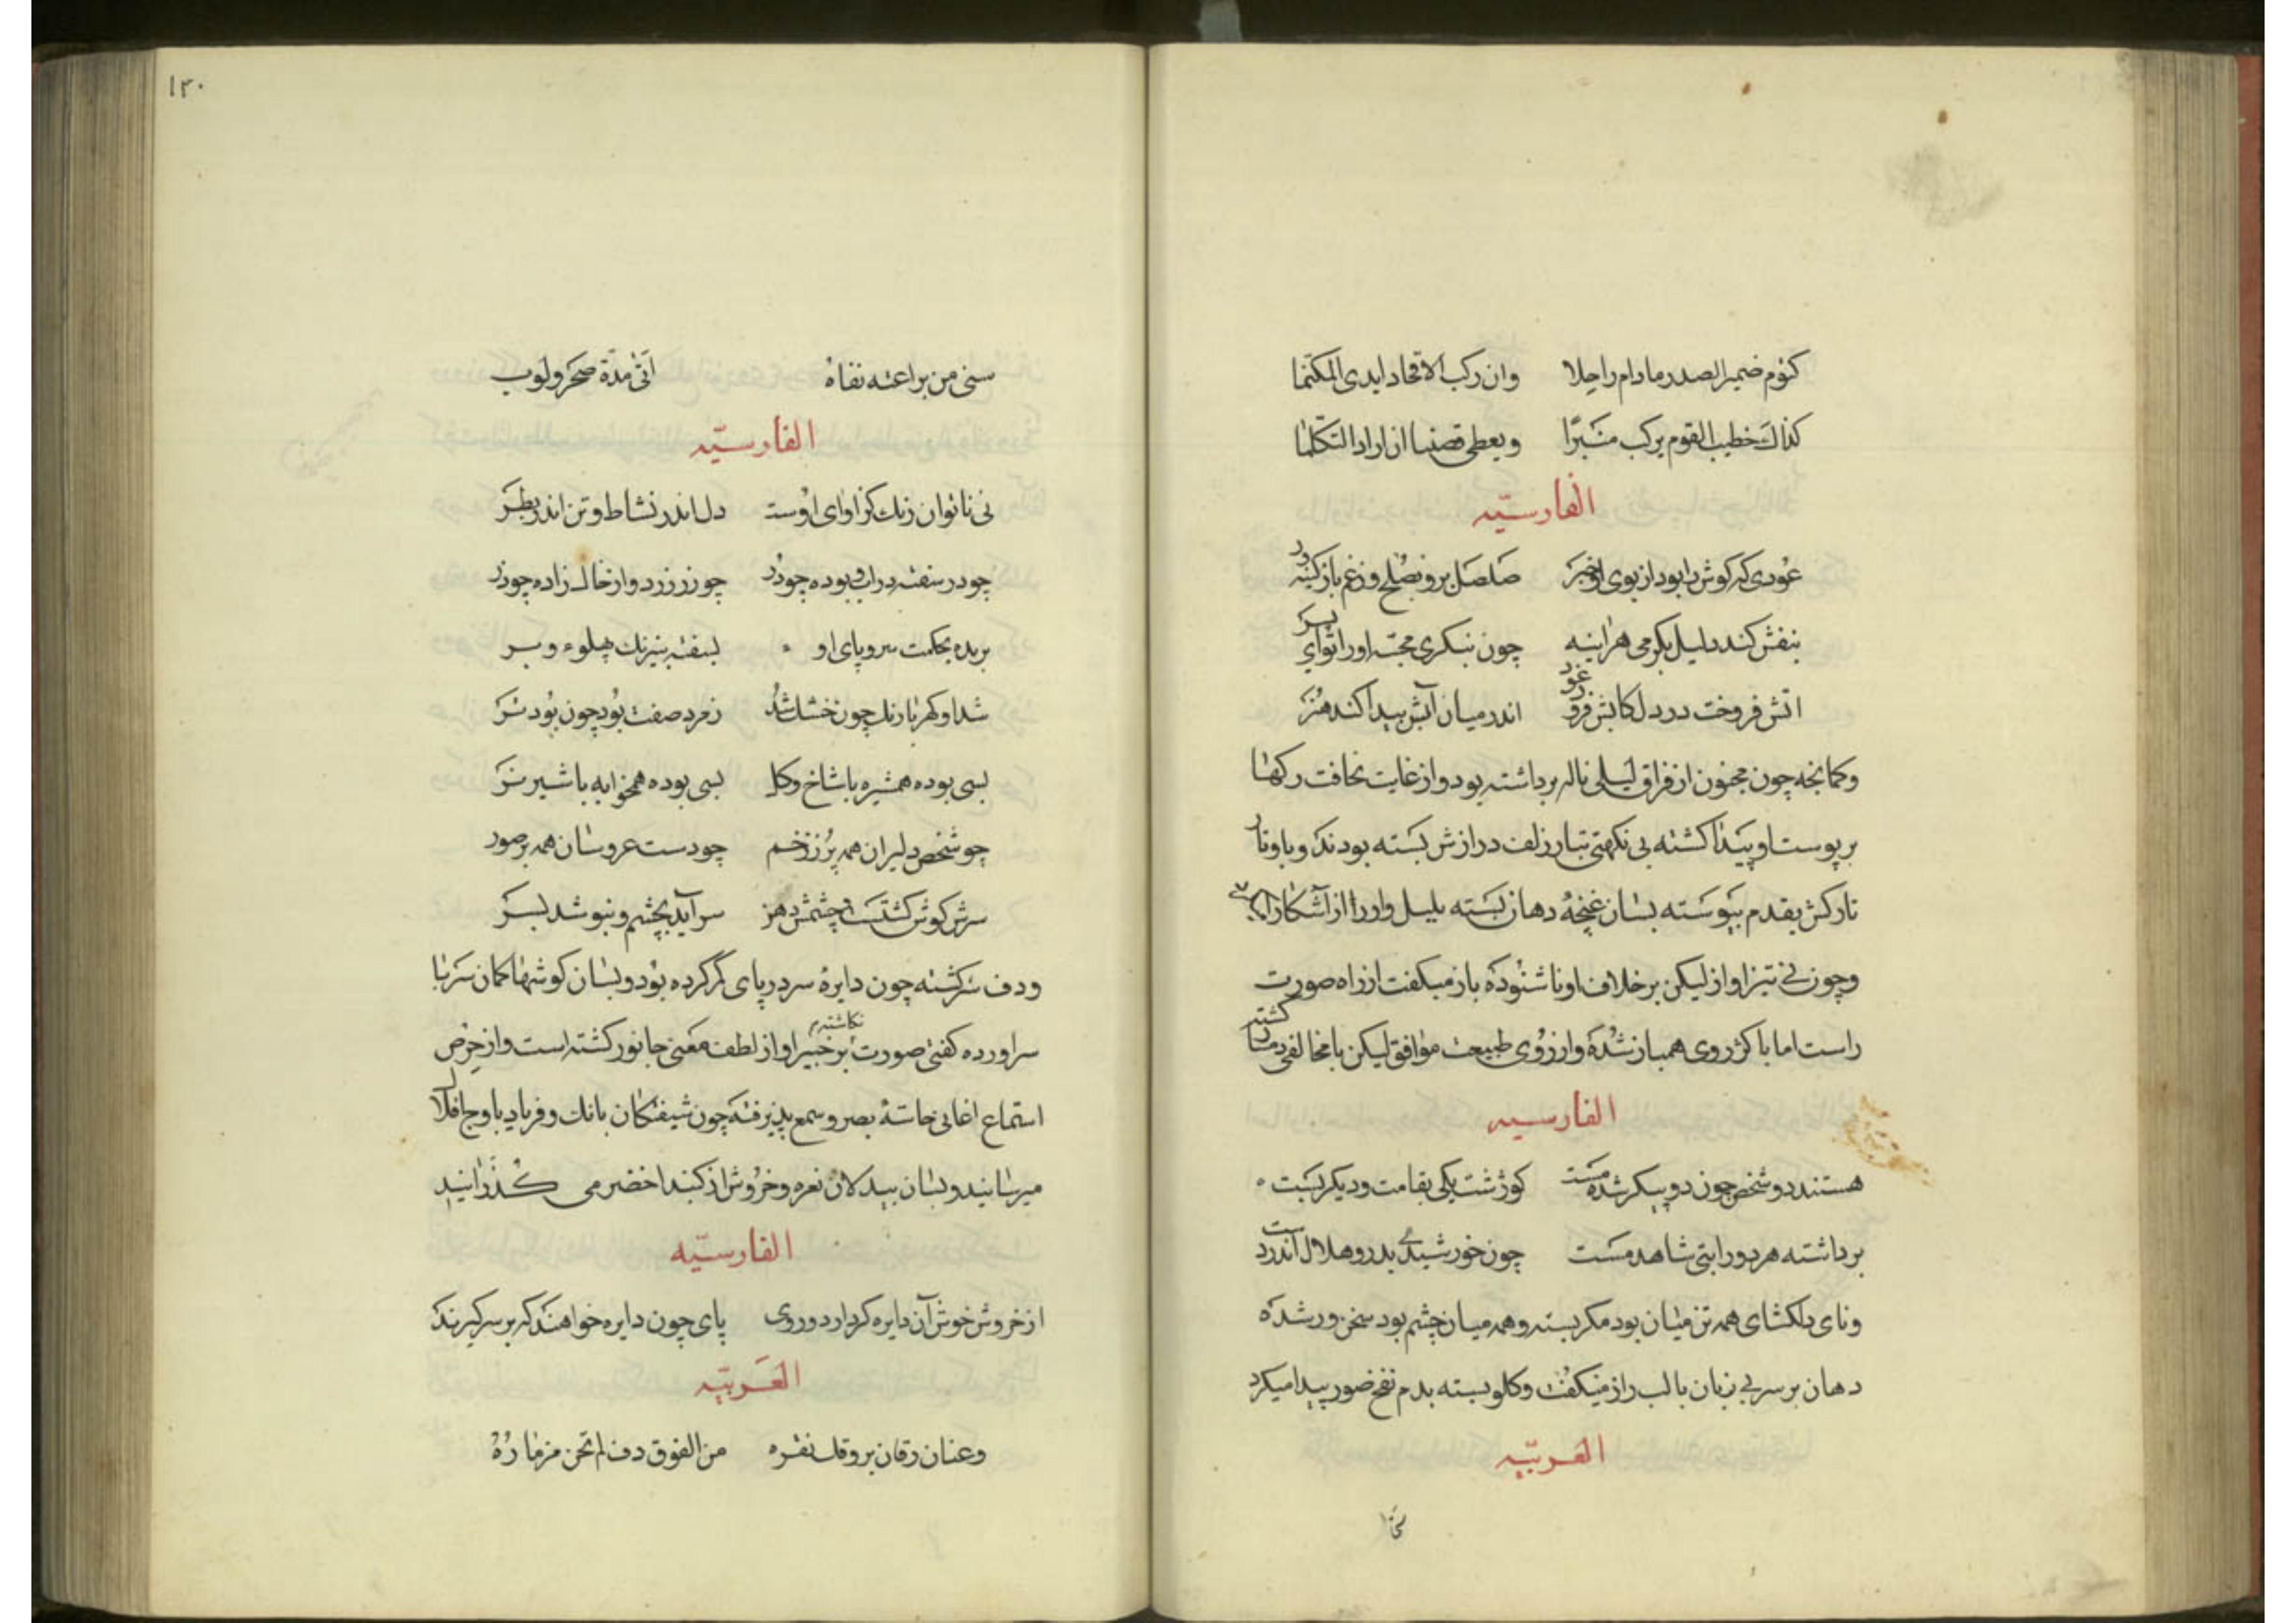 كنوم ضمير الصدر مادام راجلا وان ركب الاقتحاد ايدى المكتما
كذاك خطيب القوم يركب منبرا ويعطى قضيبا ان اراد التكلما
الفارسيّه
عودی که کوش را بود از بوی او خبر صلصل برو بصلح وزغم باز کینه ور
بنفش کند دلیل بکرمی هراینه چون بنکری مجسه اورا تو ای پسر
اتش فروخت در دل کانش فرو غود اندر میان آتش پیدا کند هنر
وکمانچه چون مجنون از فراق لیلی ناله برداشته بود واز غایت نحافت رکها
بر پوست او پیدا کشته بی نکهتی بتار زلف درازش بسته بودند وبا وتار
تارکش بقدم پیوسته بسان غنچهٔ دهان بسته بلبل واورا از آشکارا
وچون نی تیز اواز لیکن بر خلاف او ناشنوده باز میکفت از راه صورت
راست اما با کژروی همباز شده واز روی طبیعت موافق لیکن با مخالفی دمساز کشته
الفارسیه
هستند دو شخص چون دو پیکر شده مست کوژشت یکی بقامت ودیکر پست
برداشته هر دو را بتی شاهد مست چون خورشیدی بدر وهلال اندر دست
ونای دلکشای همه تن میان بود مکر بسته وهمه میان چشم بود سخن ور شده
دهان بر سر بی زبان با لب راز میکفت وکلو بسته بدم نفخ صور پیدا میکرد
العربیّه
سخی
۱۳۰
سخى من براعته نقاه اتى مدة صحر ولوب
الفارسیّه
نی ناتوان زنك کز اوای اوست دل اندر نشاط وتن اندر بطر
چو در سفته در اب وبوده چو در چو زر زرد واز خاك زاده چو زر
بریده بحکمت سر وپای او بسفته بنیرنك پهلو وبر
شد او کهربا رنك چون خشك شد زمرد صفت بود چون بود تر
بسی بوده همشیره با شاخ وکل بسی بوده همخوابه با شیر نر
چو شخص دلیران همه پر ز زخم چو دست عروسان همه بر صور
سرش کوش کشتست وچشمش دهن سر آید بچشم وبنوشد بسر
ودف سرکشته چون دایرهٔ سر در پای کم کرده بود وبسان کوشها کمان سر با
سر اورده کفتی صورت نکاشته بر چنبر او از لطف معنی جانور کشته است واز حرص
استماع اغانی حاسهٔ بصر وسمع پذیرفته چون شیفتکان بانك وفریاد باوج افلاك
میرسانید وبسان بیدلان نعره وخروش از کنبد اخضر می کذرانید
الفارسیّه
از خروش خوش آن دایره کردار دوروی پای چون دایره خواهند که بر سر کیرند
العربیّه
وعنان رقان بروقك نقره من الفوق دف لم تخن مزماره